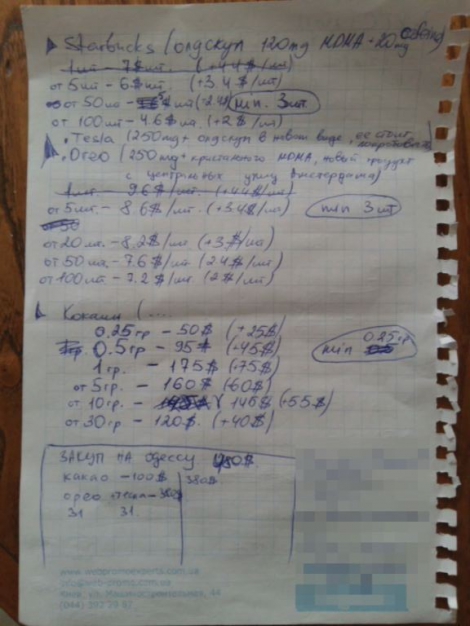 Starbucks / олдскул 120mg MDMA - 20mg cofeing
1 шт - 7$ шт. (+4.4$/шт)
от 5 шт - 6$ шт. (+3.4$/шт)
от 50 шт - шт (+2.4$) min. 3 шт
от 100 шт - 4.6$ шт (+2$/шт)
Tesla (250mg + олдскул в новом виде,
Oreo (250mg + кристаного MDMA, новый продукт
с центральных улиц Амстердама)
1 шт - 9.6$/шт. (+4.4$/шт)
от 5 шт. - 8.6$/шт. (+3.4$/шт) min 3 шт
от 20 шт. - 8.2$/шт (+3$/шт)
от 50 шт - 7.6$/шт (2.4$/шт)
от 100 шт - 7.2$/шт (2$/шт)
Кокаин (....
0.25 гр - 50$ (+25$)
0.5 гр - 95$ (+45$) min 0.25 гр
1 гр. - 175$ (+75$)
от 5 гр - 160$ (60$)
от 10 гр. - 145$ (+55$)
от 30 гр. - 120$. (+40$)
ЗАКУП НА Одессу
какао - 100$ 380$
орео тесла
31 31
www.webpromoexperts.com.ua
info@web-promo.com.ua
(044)